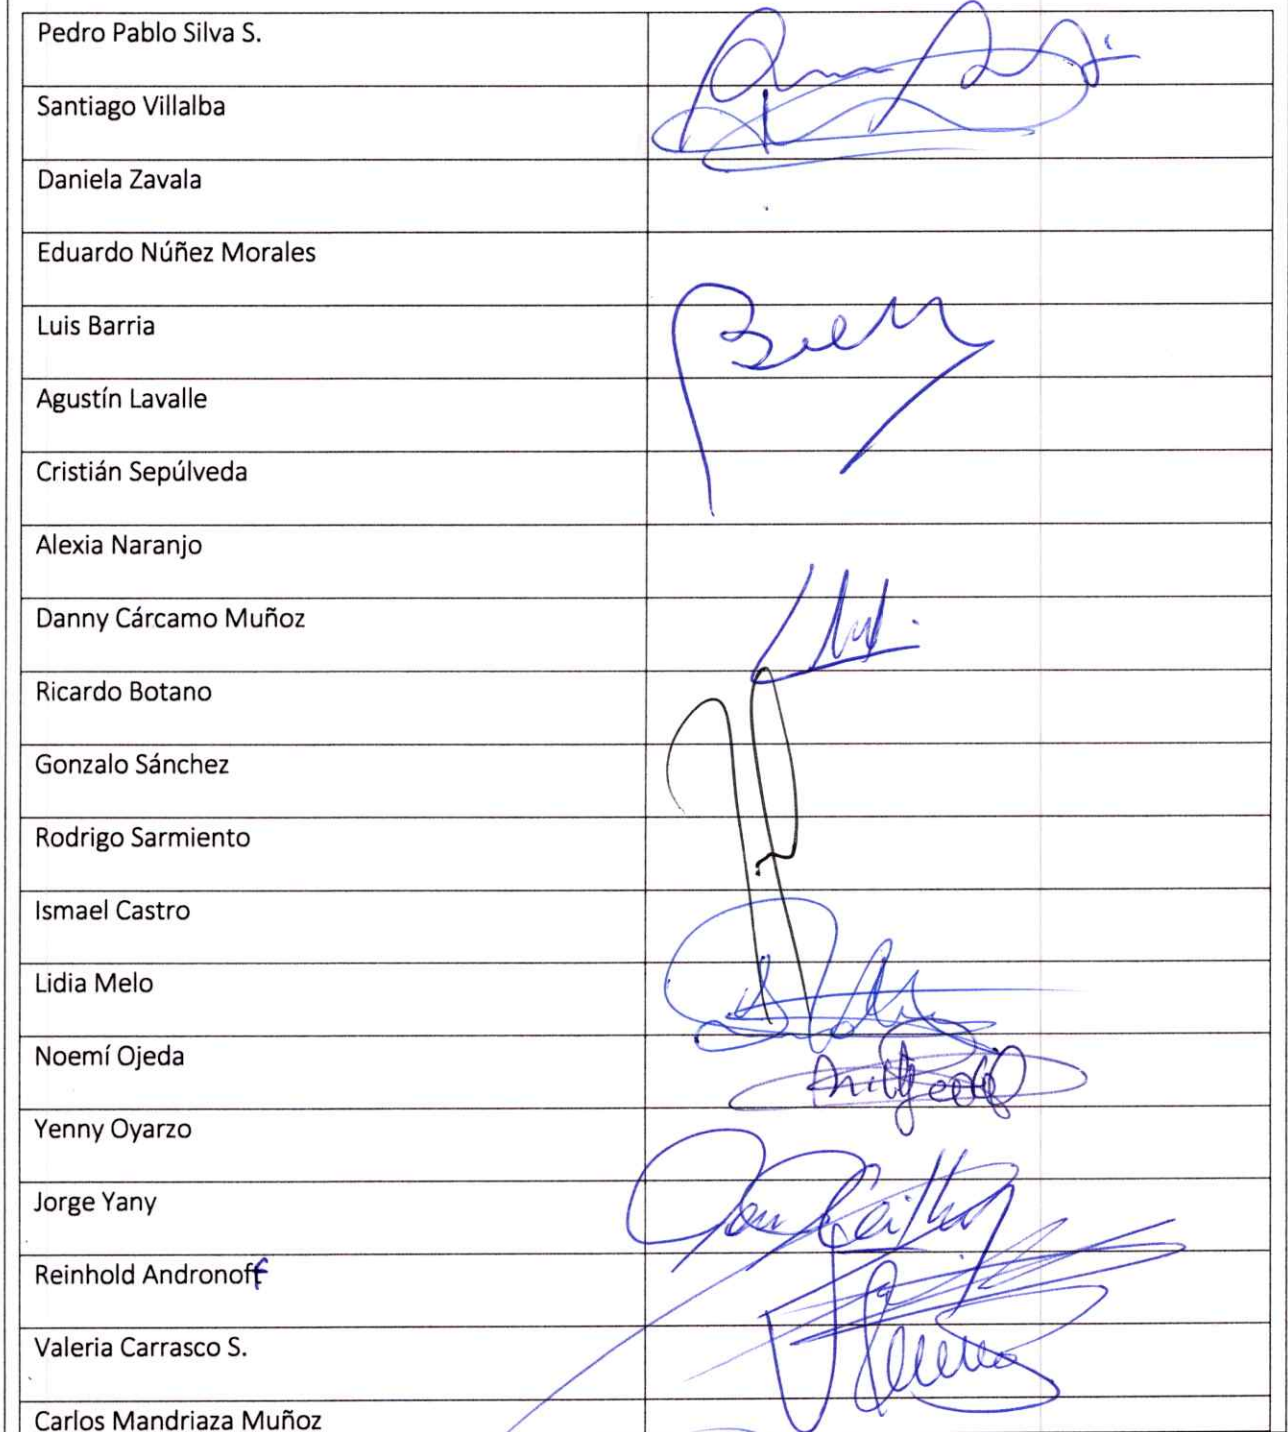 Pedro Pablo Silva S.
Santiago Villalba
Daniela Zavala
Eduardo Núñez Morales
Luis Barria
Agustín Lavalle
Cristián Sepúlveda
Alexia Naranjo
Danny Cárcamo Muñoz
Ricardo Botano
Gonzalo Sánchez
Rodrigo Sarmiento
Ismael Castro
Lidia Melo
Noemí Ojeda
Yenny Oyarzo
Jorge Yany
Reinhold Andronoff
Valeria Carrasco S.
Carlos Mandriaza Muñoz